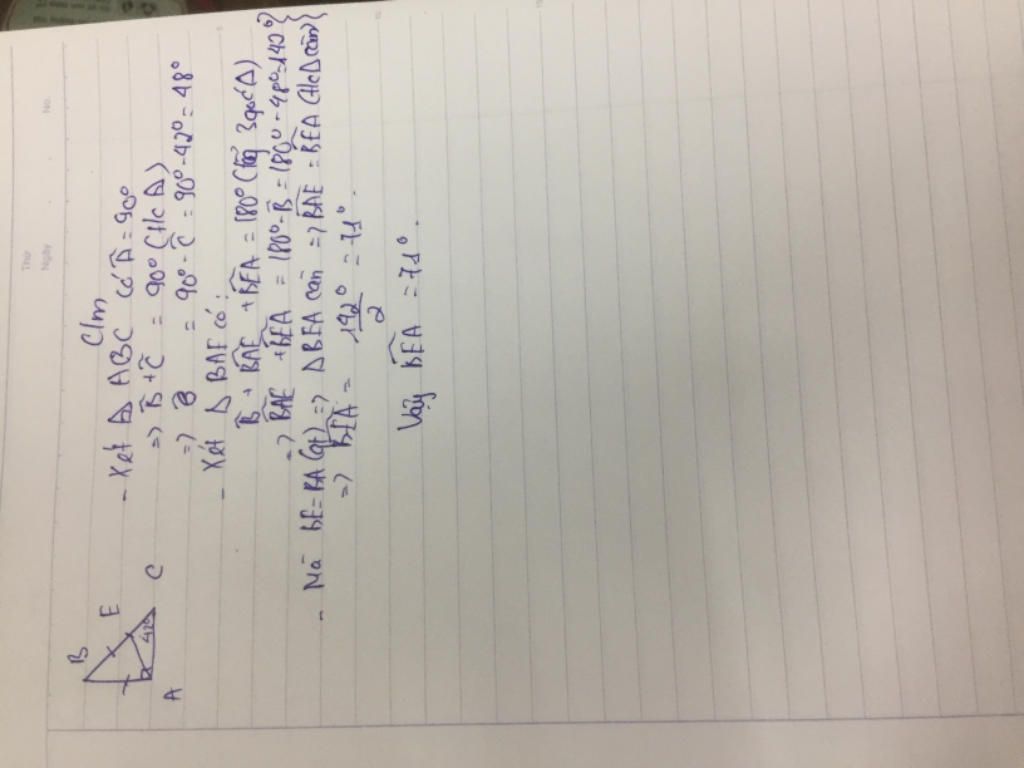 Thứ
Ngày
No.
B
E
42°
A
C
C/m
- Xét Δ ABC có Â = 90°
=> B̂ + Ĉ = 90° (t/c Δ)
=> B̂ = 90° - Ĉ = 90° - 42° = 48°
- Xét Δ BAE có:
B̂ + BAE + BEA = 180° (tổng 3 góc Δ)
=> BAE + BEA = 180° - B̂ = 180° - 48° = 140°
- Mà BE = BA (gt) => Δ BEA cân => BAE = BEA (t/c Δ cân)
=> BEA = 142°/2 = 71°.
Vậy BEA = 71°.